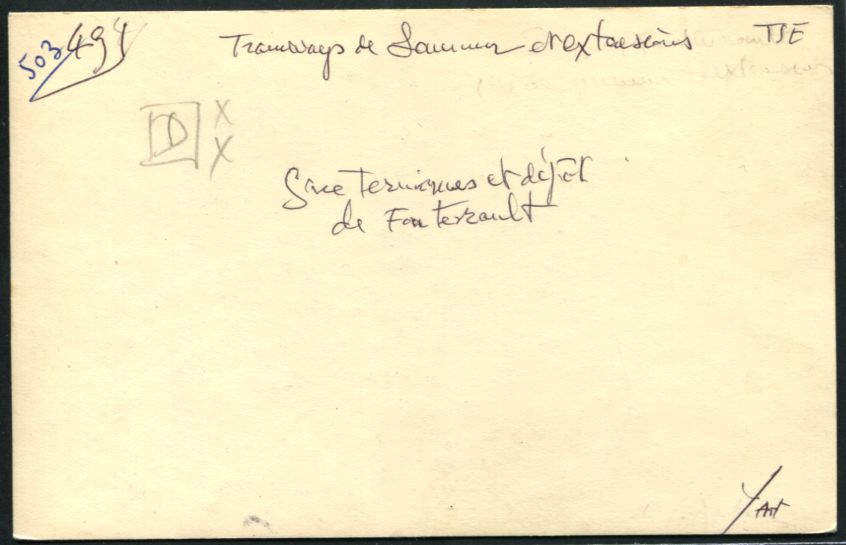 503 494 Tramways de Saumur et extensions TSE
D X
X
Gare Terminus et dépôt
de Fontevrault